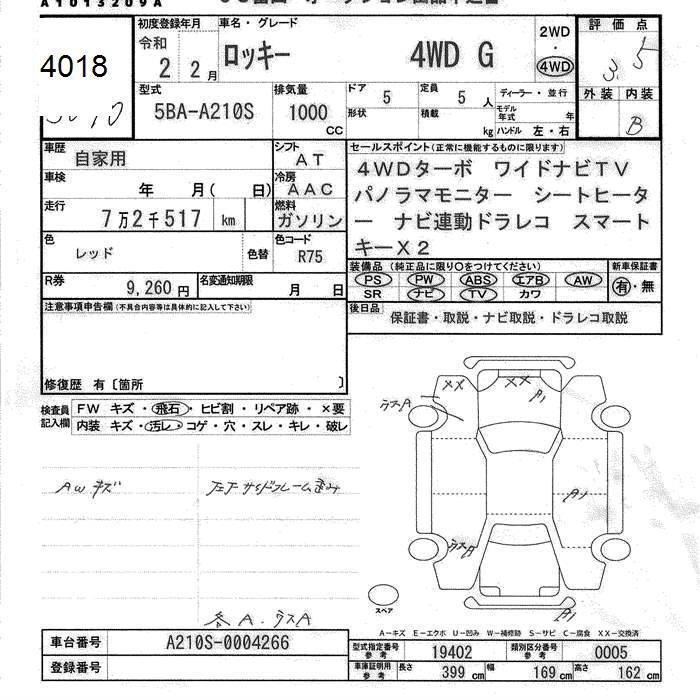 4018
初度登録年月
令和
2 2月
車名・グレード
ロッキー 4WD G
2WD
・
4WD
評価点
3.5
外装 内装
B
型式
5BA-A210S
排気量
1000
CC
ドア
5
定員
5 人
形状
積載
kg
ディーラー・並行
モデル年式 年
ハンドル 左・右
車歴
自家用
シフト
AT
車検
年 月( 日)
冷房
AAC
走行
7万2千517 km
燃料
ガソリン
色
レッド
色替
色コード
R75
R券
9,260円
名変通知期限
月 日
セールスポイント(正常に機能するものに限ります)
4WDターボ ワイドナビTV
パノラマモニター シートヒータ
ー ナビ連動ドラレコ スマート
キーX2
装備品 (純正品に限り○をつけてください)
PS PW ABS エアB AW
SR ナビ TV カワ
新車保証書
有・無
後日品
保証書・取説・ナビ取説・ドラレコ取説
注意事項申告欄(不具合内容等は具体的に記入して下さい)
修復歴 有〔箇所 〕
検査員
記入欄
FW キズ・飛石・ヒビ割・リペア跡・×要
内装 キズ・汚レ・コゲ・穴・スレ・キレ・破レ
AWキズ
左下サイドフレーム歪み
XX
XX
A1
A1
A1
スペア
A-キズ E-エクボ U-凹み W-補修跡 S-サビ C-腐食 XX-交換済
車台番号
A210S-0004266
登録番号
型式指定番号
参考
19402
類別区分番号
参考
0005
車庫証明用
参考
長さ 399 cm 幅 169 cm 高さ 162 cm